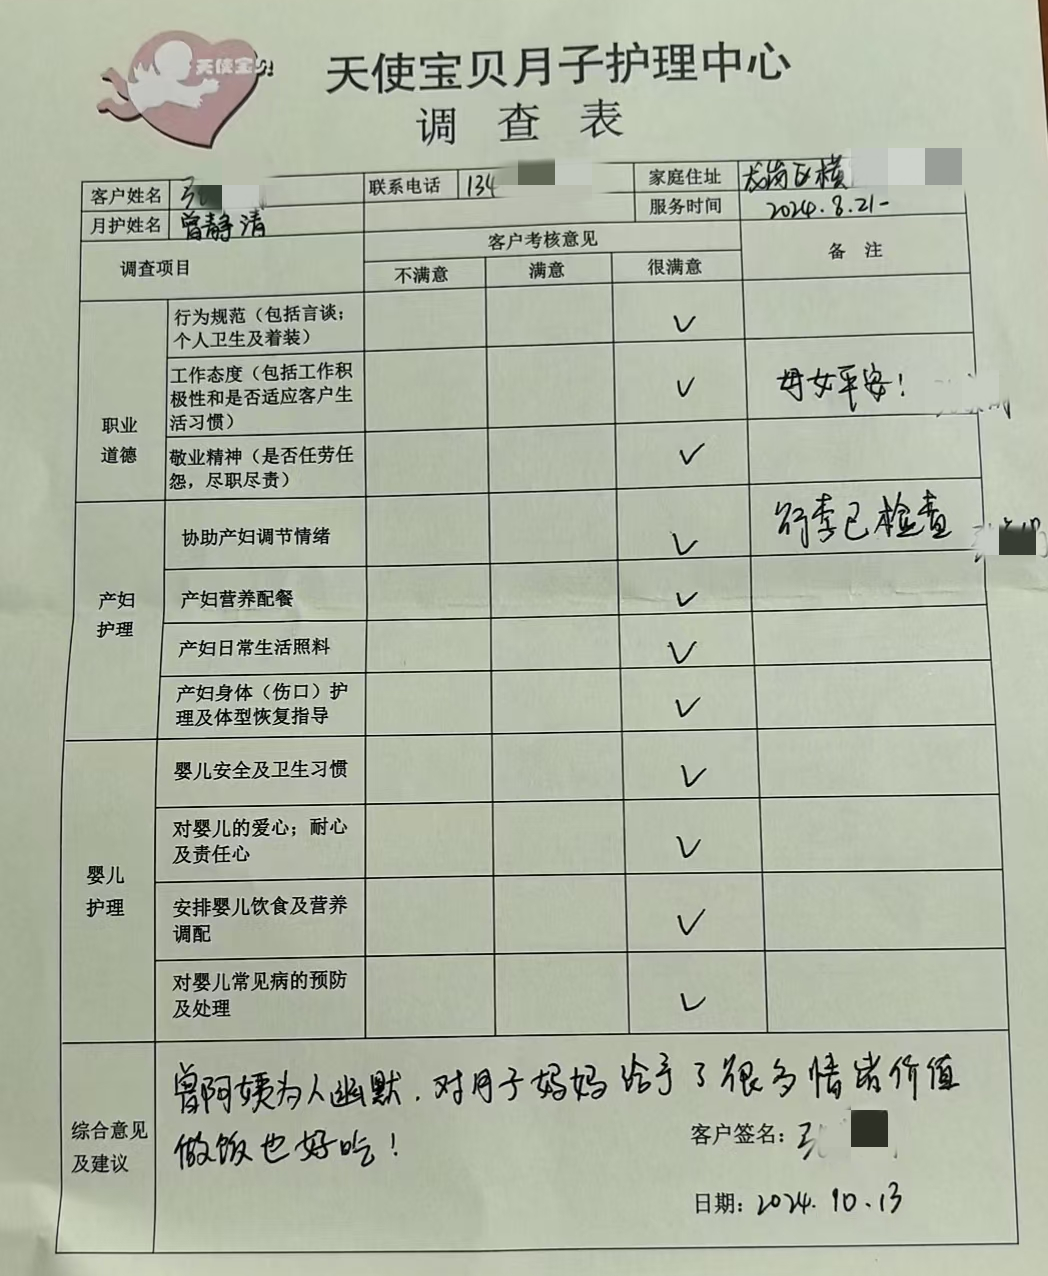 天使宝贝
天使宝贝月子护理中心
调查表
客户姓名 联系电话 134 家庭住址 龙岗区横
月护姓名 曾静清 服务时间 2024.8.21-
调查项目 客户考核意见 备 注
不满意 满意 很满意
职业
道德
行为规范（包括言谈；
个人卫生及着装） ✓
工作态度（包括工作积
极性和是否适应客户生
活习惯） ✓ 母女平安！
敬业精神（是否任劳任
怨，尽职尽责） ✓
产妇
护理
协助产妇调节情绪 ✓ 行李已检查
产妇营养配餐 ✓
产妇日常生活照料 ✓
产妇身体（伤口）护
理及体型恢复指导 ✓
婴儿
护理
婴儿安全及卫生习惯 ✓
对婴儿的爱心；耐心
及责任心 ✓
安排婴儿饮食及营养
调配 ✓
对婴儿常见病的预防
及处理 ✓
综合意见
及建议
曾阿姨为人幽默，对月子妈妈给予了很多情绪价值
做饭也好吃！
客户签名：
日期：2024.10.13